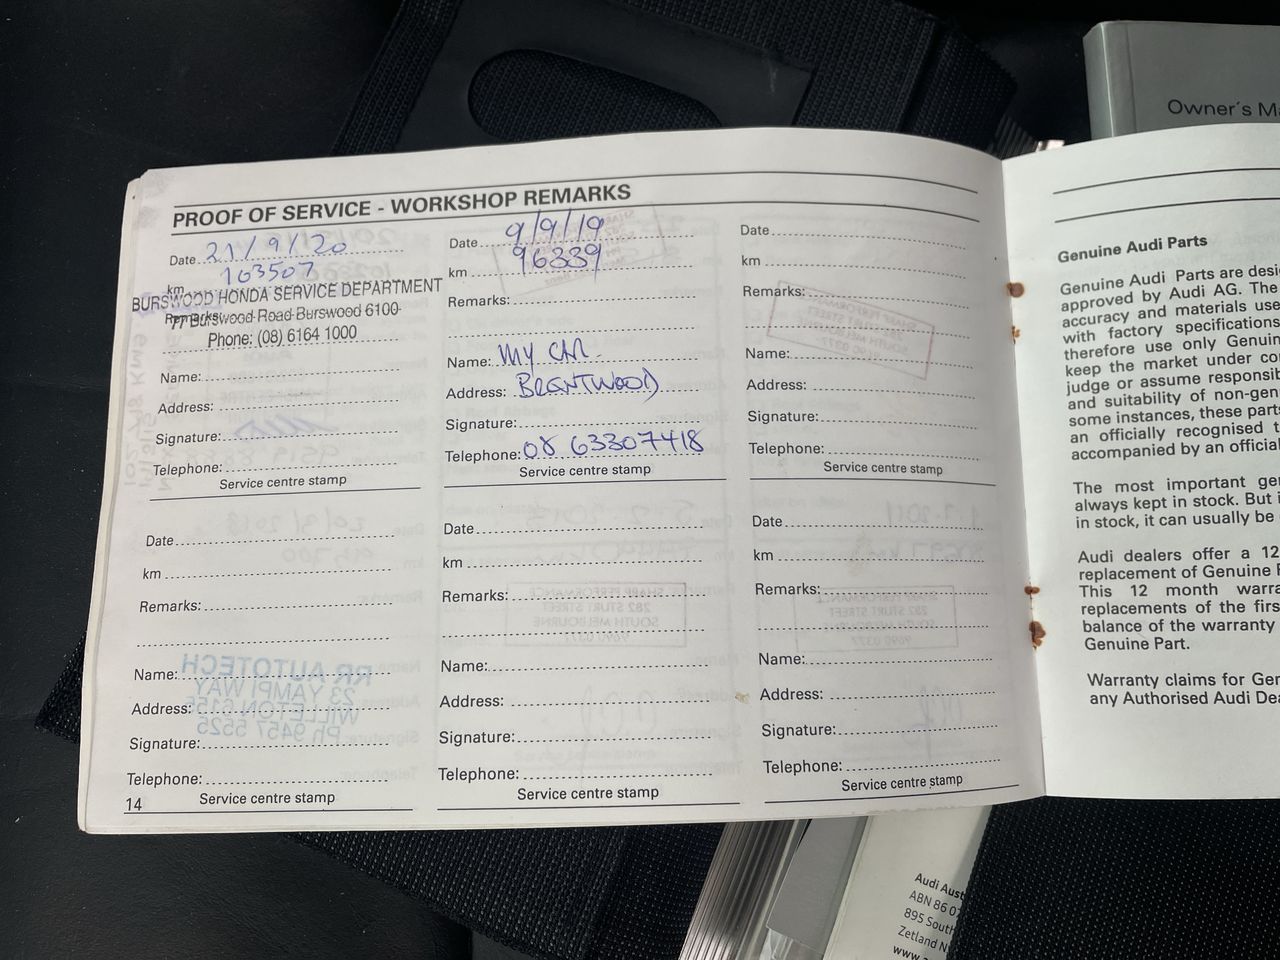 PROOF OF SERVICE - WORKSHOP REMARKS
Date 21/9/20
km 103507
BURSWOOD HONDA SERVICE DEPARTMENT
Remarks: 77 Burswood Road Burswood 6100
Phone: (08) 6164 1000
Name:
Address:
Signature:
Telephone:
Service centre stamp
Date 9/9/19
km 96339
Remarks:
Name: My Car
Address: Brentwood
Signature:
Telephone: 08 63307418
Service centre stamp
Date
km
Remarks:
Name:
Address:
Signature:
Telephone:
Service centre stamp
Date
km
Remarks:
Name:
Address:
Signature:
Telephone:
Service centre stamp
14
RR AUTOTECH
23 YAMPI WAY
WILLETON 6155
Ph 9457 5525
Date
km
Remarks:
Name:
Address:
Signature:
Telephone:
Service centre stamp
SHARP PERFORMANCE
282 STURT STREET
SOUTH MELBOURNE
9690 0377
Date
km
Remarks:
Name:
Address:
Signature:
Telephone:
Service centre stamp
Owner's Ma
Genuine Audi Parts
Genuine Audi Parts are desi
approved by Audi AG. The
accuracy and materials use
with factory specifications
therefore use only Genuin
keep the market under co
judge or assume responsib
and suitability of non-gen
some instances, these parts
an officially recognised t
accompanied by an official
The most important gen
always kept in stock. But i
in stock, it can usually be
Audi dealers offer a 12
replacement of Genuine P
This 12 month warra
replacements of the first
balance of the warranty
Genuine Part.
Warranty claims for Gen
any Authorised Audi Dea
Audi Aust
ABN 86 07
895 South
Zetland N
www.a